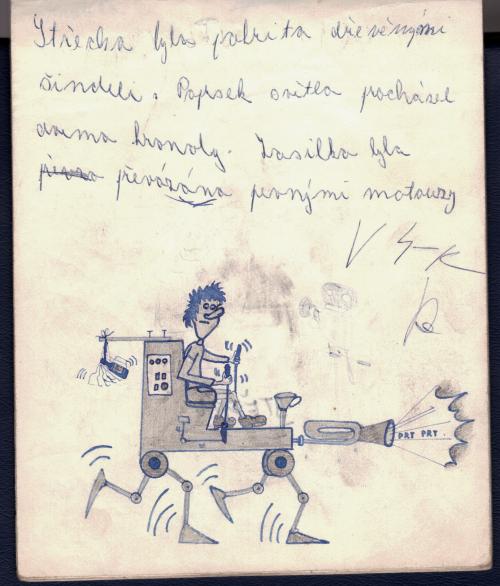 Střecha byla pokrita dřevěnými
šindeli. Paprsek světla procházel
dvěma hranoly. Zasilka byla
převázána pevnými motouzy
PRT PRT.